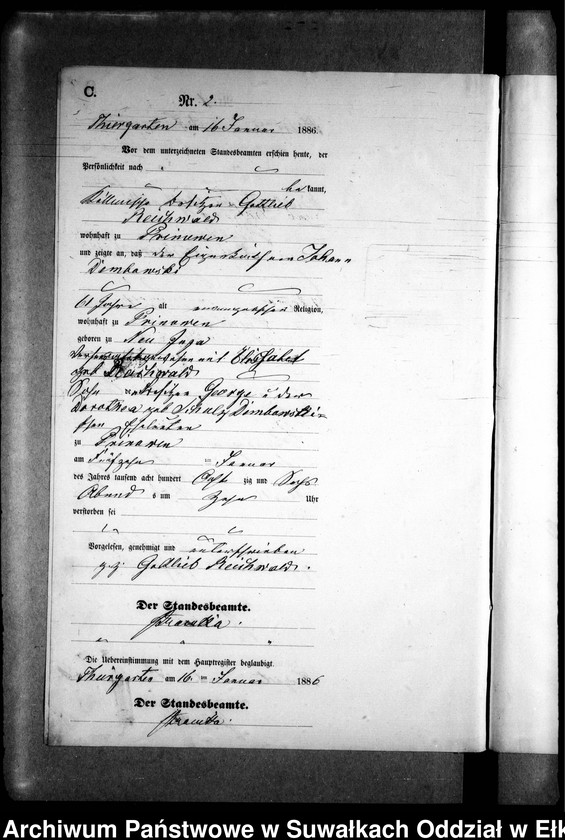 C.
Nr. 2.
Thiergarten am 16 Januar 1886.
Vor dem unterzeichneten Standesbeamten erschien heute, der
Persönlichkeit nach
bekannt,
Köllmische Besitzer Gottlieb
Reichwald
wohnhaft zu Prinowen
und zeigte an, daß der Johann
Dombowski
61 Jahre alt evangelischer Religion,
wohnhaft zu Prinowen
geboren zu Neu
mit Elisabet
geb Reichwald
Sohn Besitzer George u der
Dorothea geb Schulz Dombowski-
schen Eheleuten
zu Prinowen
am Fünfzehn Januar
des Jahres tausend acht hundert Acht zig und Sechs
Abend s um Zehn Uhr
verstorben sei
Vorgelesen, genehmigt und unterschrieben
gez. Gottlieb Reichwald.
Der Standesbeamte.
Die Uebereinstimmung mit dem Hauptregister beglaubigt.
Thiergarten am 16 ten Januar 1886
Der Standesbeamte.
Archiwum Państwowe w Suwałkach Oddział w Ełk